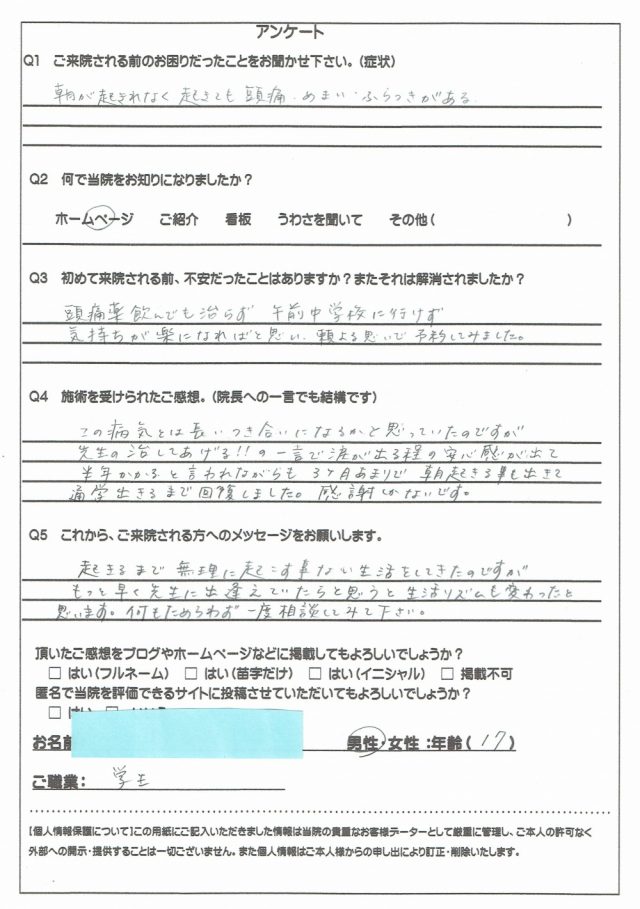 アンケート
Q1 ご来院される前のお困りだったことをお聞かせ下さい。(症状)
朝が起きれなく 起きても 頭痛・めまい・ふらつきがある
Q2 何で当院をお知りになりましたか?
ホームページ ご紹介 看板 うわさを聞いて その他( )
Q3 初めて来院される前、不安だったことはありますか?またそれは解消されましたか?
頭痛薬飲んでも治らず 午前中学校に行けず
気持ちが楽になればと思い、頼よる思いで予約してみました。
Q4 施術を受けられたご感想。(院長への一言でも結構です)
この病気とは長いつき合いになるかと思っていたのですが
先生の治してあげる!!の一言で涙が出る程の安心感が出て
半年かかると言われながらも 3ヶ月あまりで 朝起きる事も出きて
通学出きるまで回復しました。感謝しかないです。
Q5 これから、ご来院される方へのメッセージをお願いします。
起きるまで無理に起こす事ない生活をしてきたのですが
もっと早く先生に出逢えていたらと思うと生活リズムも変わったと
思います。何もためらわず一度相談してみて下さい。
頂いたご感想をブログやホームページなどに掲載してもよろしいでしょうか?
□ はい(フルネーム) □ はい(苗字だけ) □ はい(イニシャル) □ 掲載不可
匿名で当院を評価できるサイトに投稿させていただいてもよろしいでしょうか?
□ はい □
お名前 男性・女性:年齢(17)
ご職業: 学生
【個人情報保護について】この用紙にご記入いただきました情報は当院の貴重なお客様データーとして厳重に管理し、ご本人の許可なく
外部への開示・提供することは一切ございません。また個人情報はご本人様からの申し出により訂正・削除いたします。